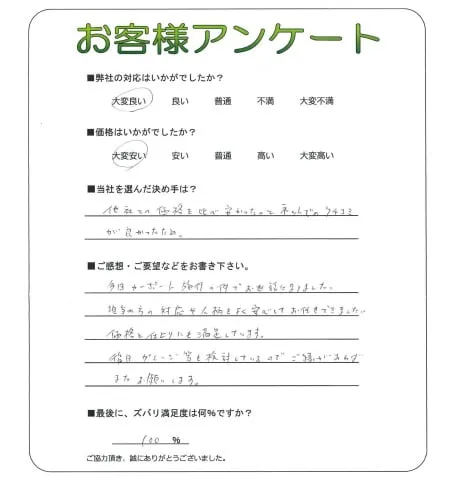 お客様アンケート
■弊社の対応はいかがでしたか？
大変良い 良い 普通 不満 大変不満
■価格はいかがでしたか？
大変安い 安い 普通 高い 大変高い
■当社を選んだ決め手は？
他社との価格を比べ安かったのと ネットでの クチコミ
が良かったため。
■ご感想・ご要望などをお書き下さい。
今回 カーポート 施行の件でお世話になりました。
担当の方の対応や人柄もよく安心してお任せできました。
価格と仕上りにも満足しています。
後日 ガレージ 等も検討しているので ご縁があれば
またお願いします。
■最後に、ズバリ満足度は何%ですか？
100 %
ご協力頂き、誠にありがとうございました。